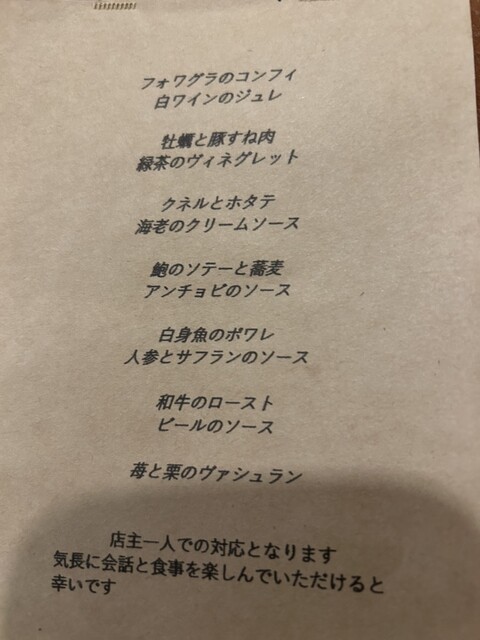 フォワグラのコンフィ
白ワインのジュレ
牡蠣と豚すね肉
緑茶のヴィネグレット
クネルとホタテ
海老のクリームソース
鮑のソテーと蕎麦
アンチョビのソース
白身魚のポワレ
人参とサフランのソース
和牛のロースト
ビールのソース
苺と栗のヴァシュラン
店主一人での対応となります
気長に会話と食事を楽しんでいただけると
幸いです